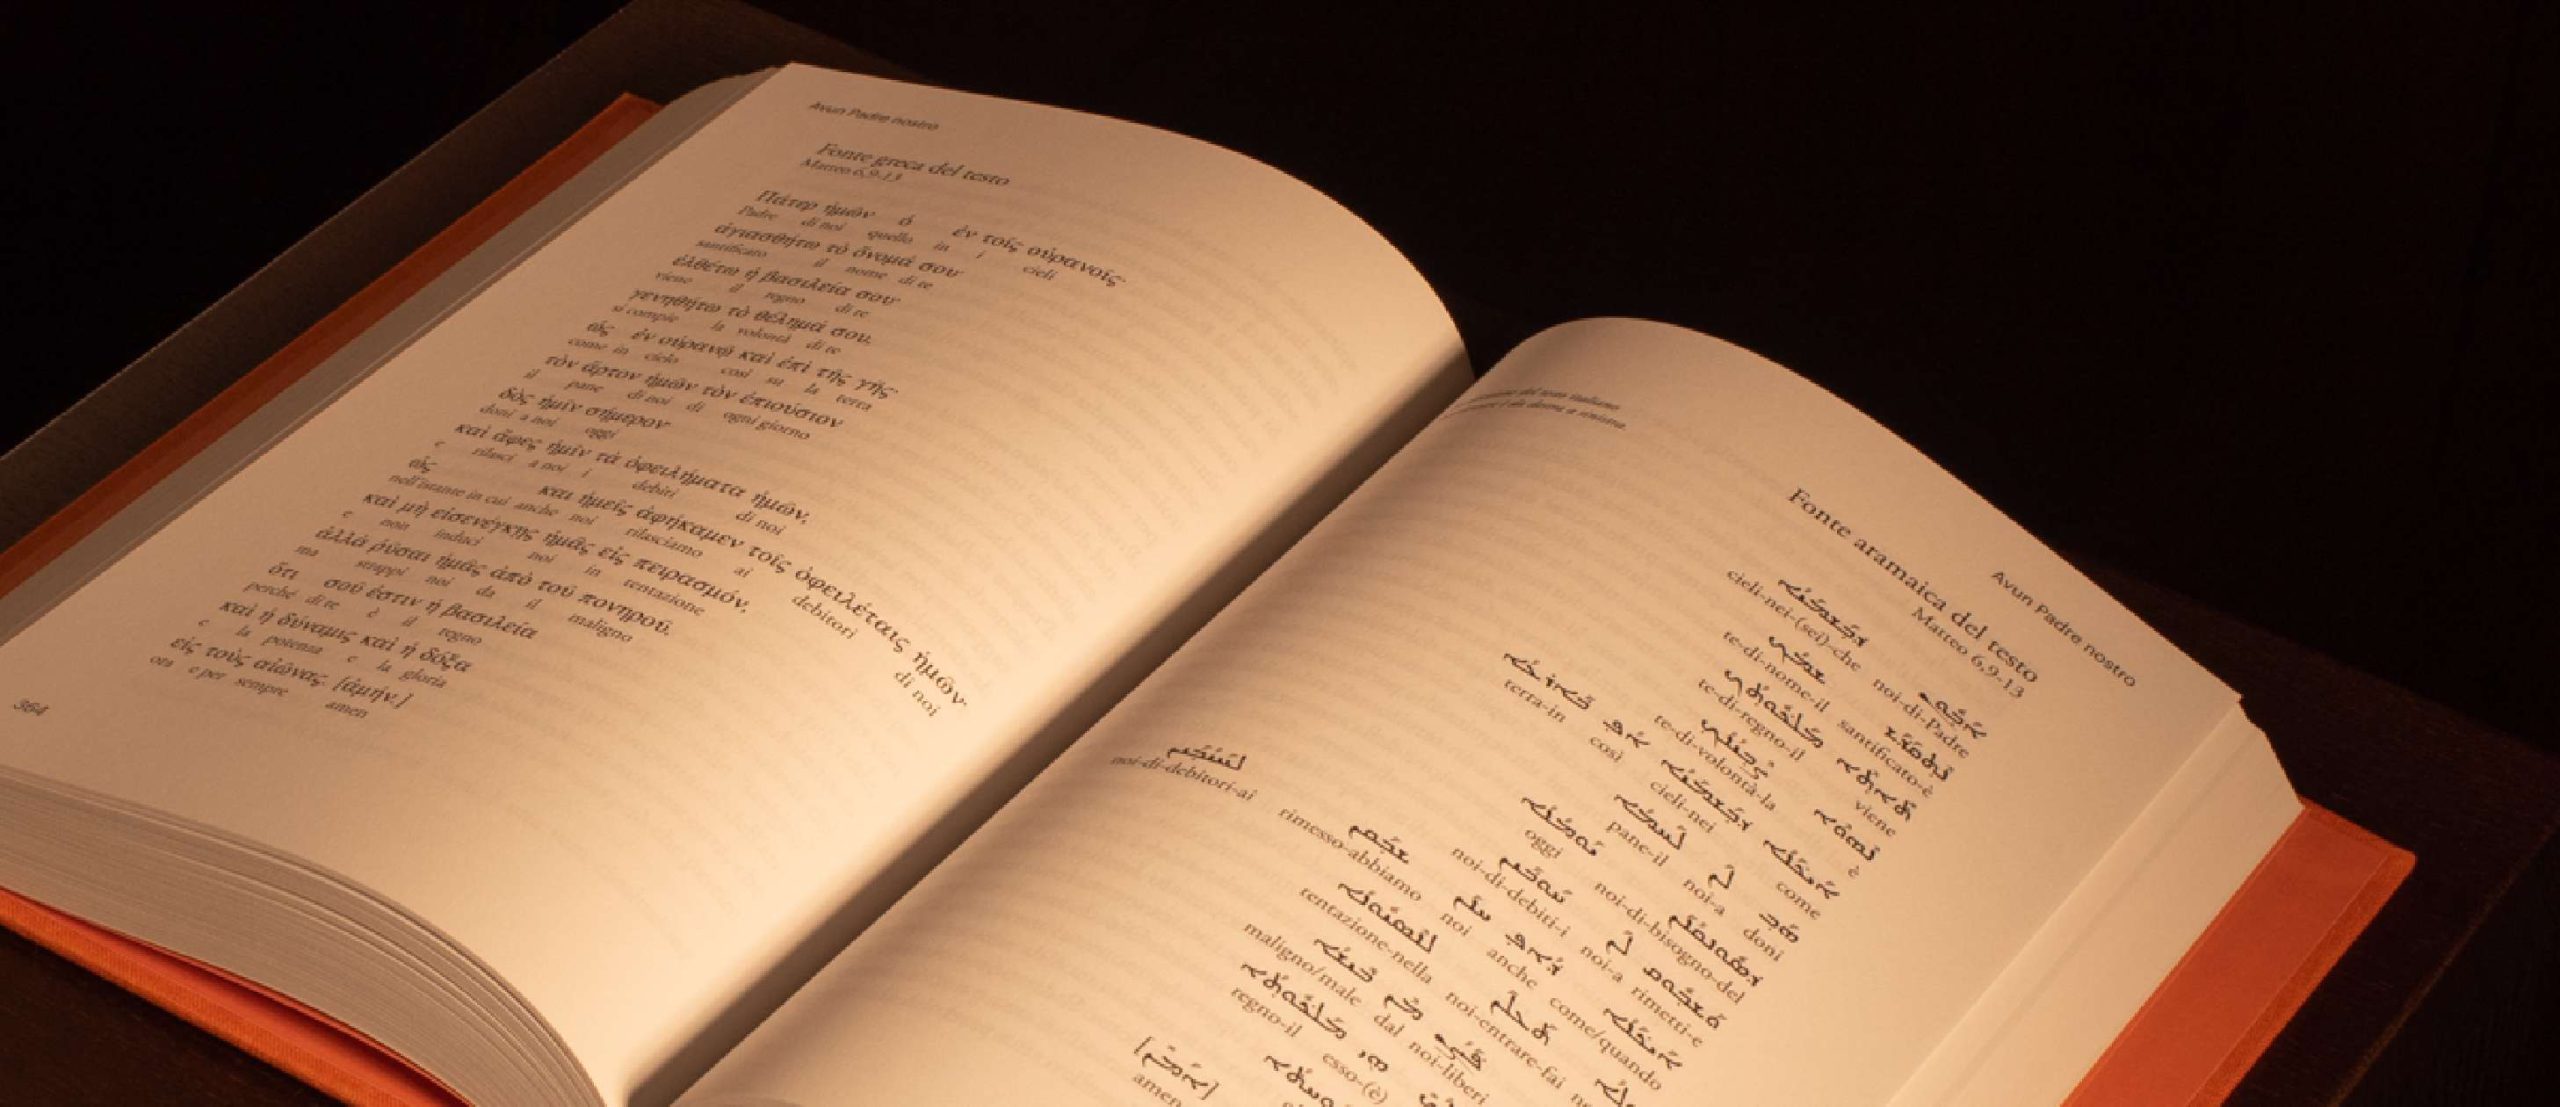 Avun Padre nostro
Fonte greca del testo
Matteo 6,9-13
Πάτερ ἡμῶν ὁ ἐν τοῖς οὐρανοῖς·
Padre di noi quello in i cieli
ἁγιασθήτω τὸ ὄνομά σου·
santificato il nome di te
ἐλθέτω ἡ βασιλεία σου·
viene il regno di te
γενηθήτω τὸ θέλημά σου,
si compie la volontà di te
ὡς ἐν οὐρανῷ καὶ ἐπὶ τῆς γῆς·
come in cielo così su la terra
τὸν ἄρτον ἡμῶν τὸν ἐπιούσιον
il pane di noi di ogni giorno
δὸς ἡμῖν σήμερον·
doni a noi oggi
καὶ ἄφες ἡμῖν τὰ ὀφειλήματα ἡμῶν,
e rilasci a noi i debiti di noi
ὡς και ἡμεῖς ἀφήκαμεν τοῖς ὀφειλέταις ἡμῶν·
nell'istante in cui anche noi rilasciamo ai debitori di noi
καὶ μὴ εἰσενέγκῃς ἡμᾶς εἰς πειρασμόν,
e non induci noi in tentazione
ἀλλὰ ῥῦσαι ἡμᾶς ἀπὸ τοῦ πονηροῦ.
ma strappi noi da il maligno
ὅτι σοῦ ἐστιν ἡ βασιλεία
perché di te è il regno
καὶ ἡ δύναμις καὶ ἡ δόξα
e la potenza e la gloria
εἰς τοὺς αἰῶνας. [ἀμήν.]
ora e per sempre amen
364
del testo italiano
da destra a sinistra.
Avun Padre nostro
Fonte aramaica del testo
Matteo 6,9-13
ܐܒܘܢ ܕܒܫܡܝܐ
cieli-nei-(sei)-che noi-di-Padre
ܢܬܩܕܫ ܫܡܟ
te-di-nome-il santificato-è
ܬܐܬܐ ܡܠܟܘܬܟ
te-di-regno-il viene
ܢܗܘܐ ܨܒܝܢܟ
te-di-volontà-la è
ܐܝܟܢܐ ܕܒܫܡܝܐ ܐܦ ܒܐܪܥܐ
terra-in così cieli-nei come
ܗܒ ܠܢ ܠܚܡܐ
pane-il noi-a doni
ܕܣܘܢܩܢܢ ܝܘܡܢܐ
oggi noi-di-bisogno-del
ܘܫܒܘܩ ܠܢ ܚܘܒܝܢ
noi-di-debiti-i noi-a rimetti-e
ܐܝܟܢܐ ܕܐܦ ܚܢܢ ܫܒܩܢ ܠܚܝܒܝܢ
noi-di-debitori-ai rimesso-abbiamo noi anche come/quando
ܬܥܠܢ ܠܢܣܝܘܢܐ
tentazione-nella noi-entrare-fai
ܦܨܢ ܡܢ ܒܝܫܐ
maligno/male dal noi-liberi
ܗܝ ܡܠܟܘܬܐ
regno-il esso-(è)
[ܐܡܝܢ]
amen